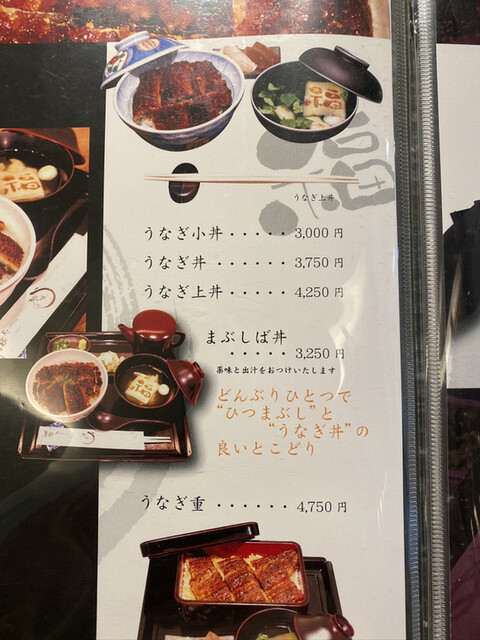 うなぎ上丼
うなぎ小丼・・・・・3,000 円
うなぎ丼・・・・・・3,750 円
うなぎ上丼・・・・・4,250 円
まぶしば丼
・・・・・3,250 円
薬味と出汁をおつけいたします
どんぶりひとつで
“ひつまぶし”と
“うなぎ丼”の
良いとこどり
うなぎ重・・・・・・4,750 円